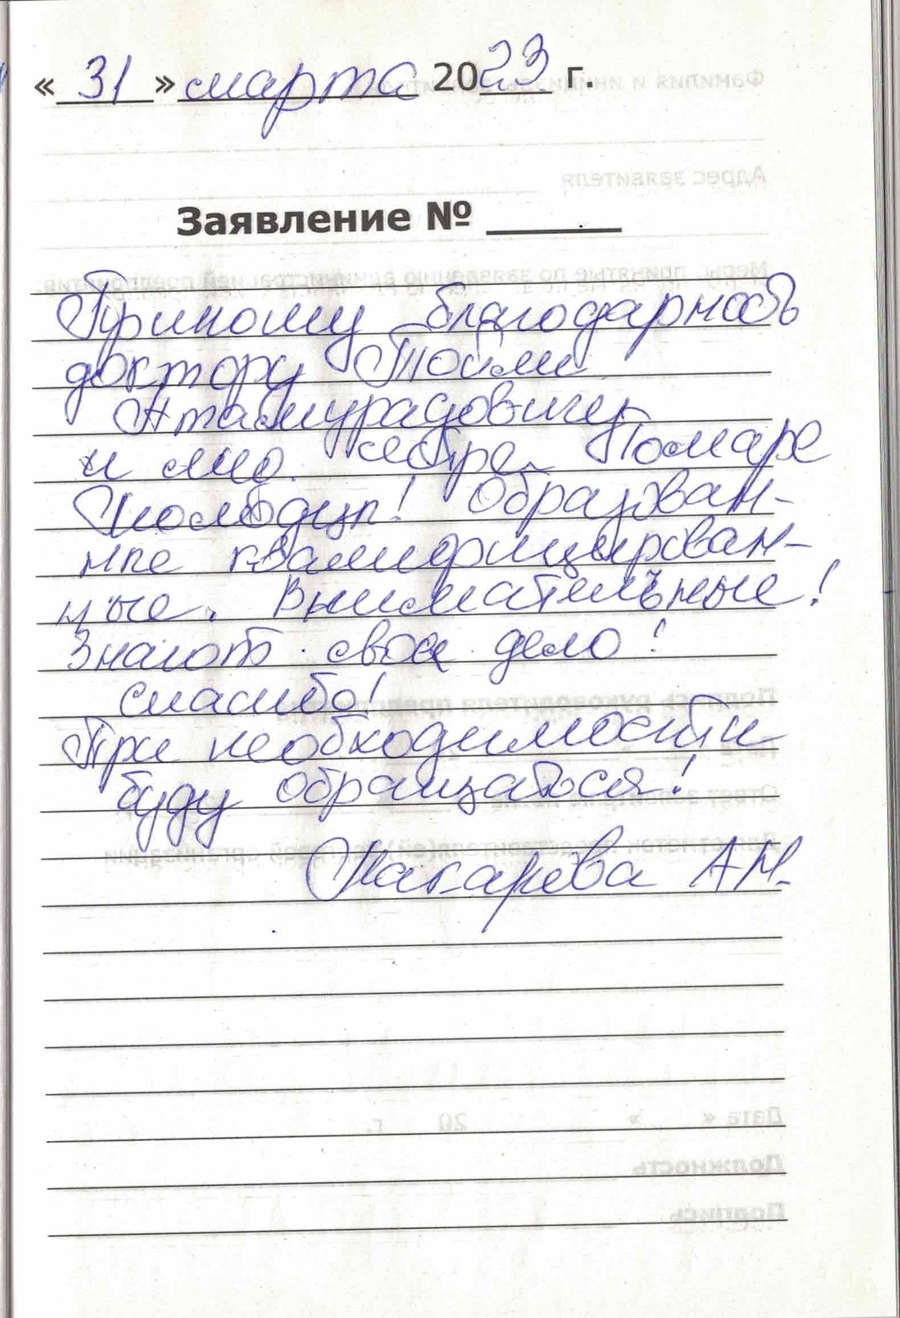 « 31 » марта 2023 г.
Заявление № ____
Приношу благодарность
доктору Тойли
Атамурадовичу
и мед. сестре Тамаре
Образован-
ные квалифицирован-
ные. Внимательные!
Знают свое дело!
Спасибо!
При необходимости
буду обращаться!
Макарева А.Н.